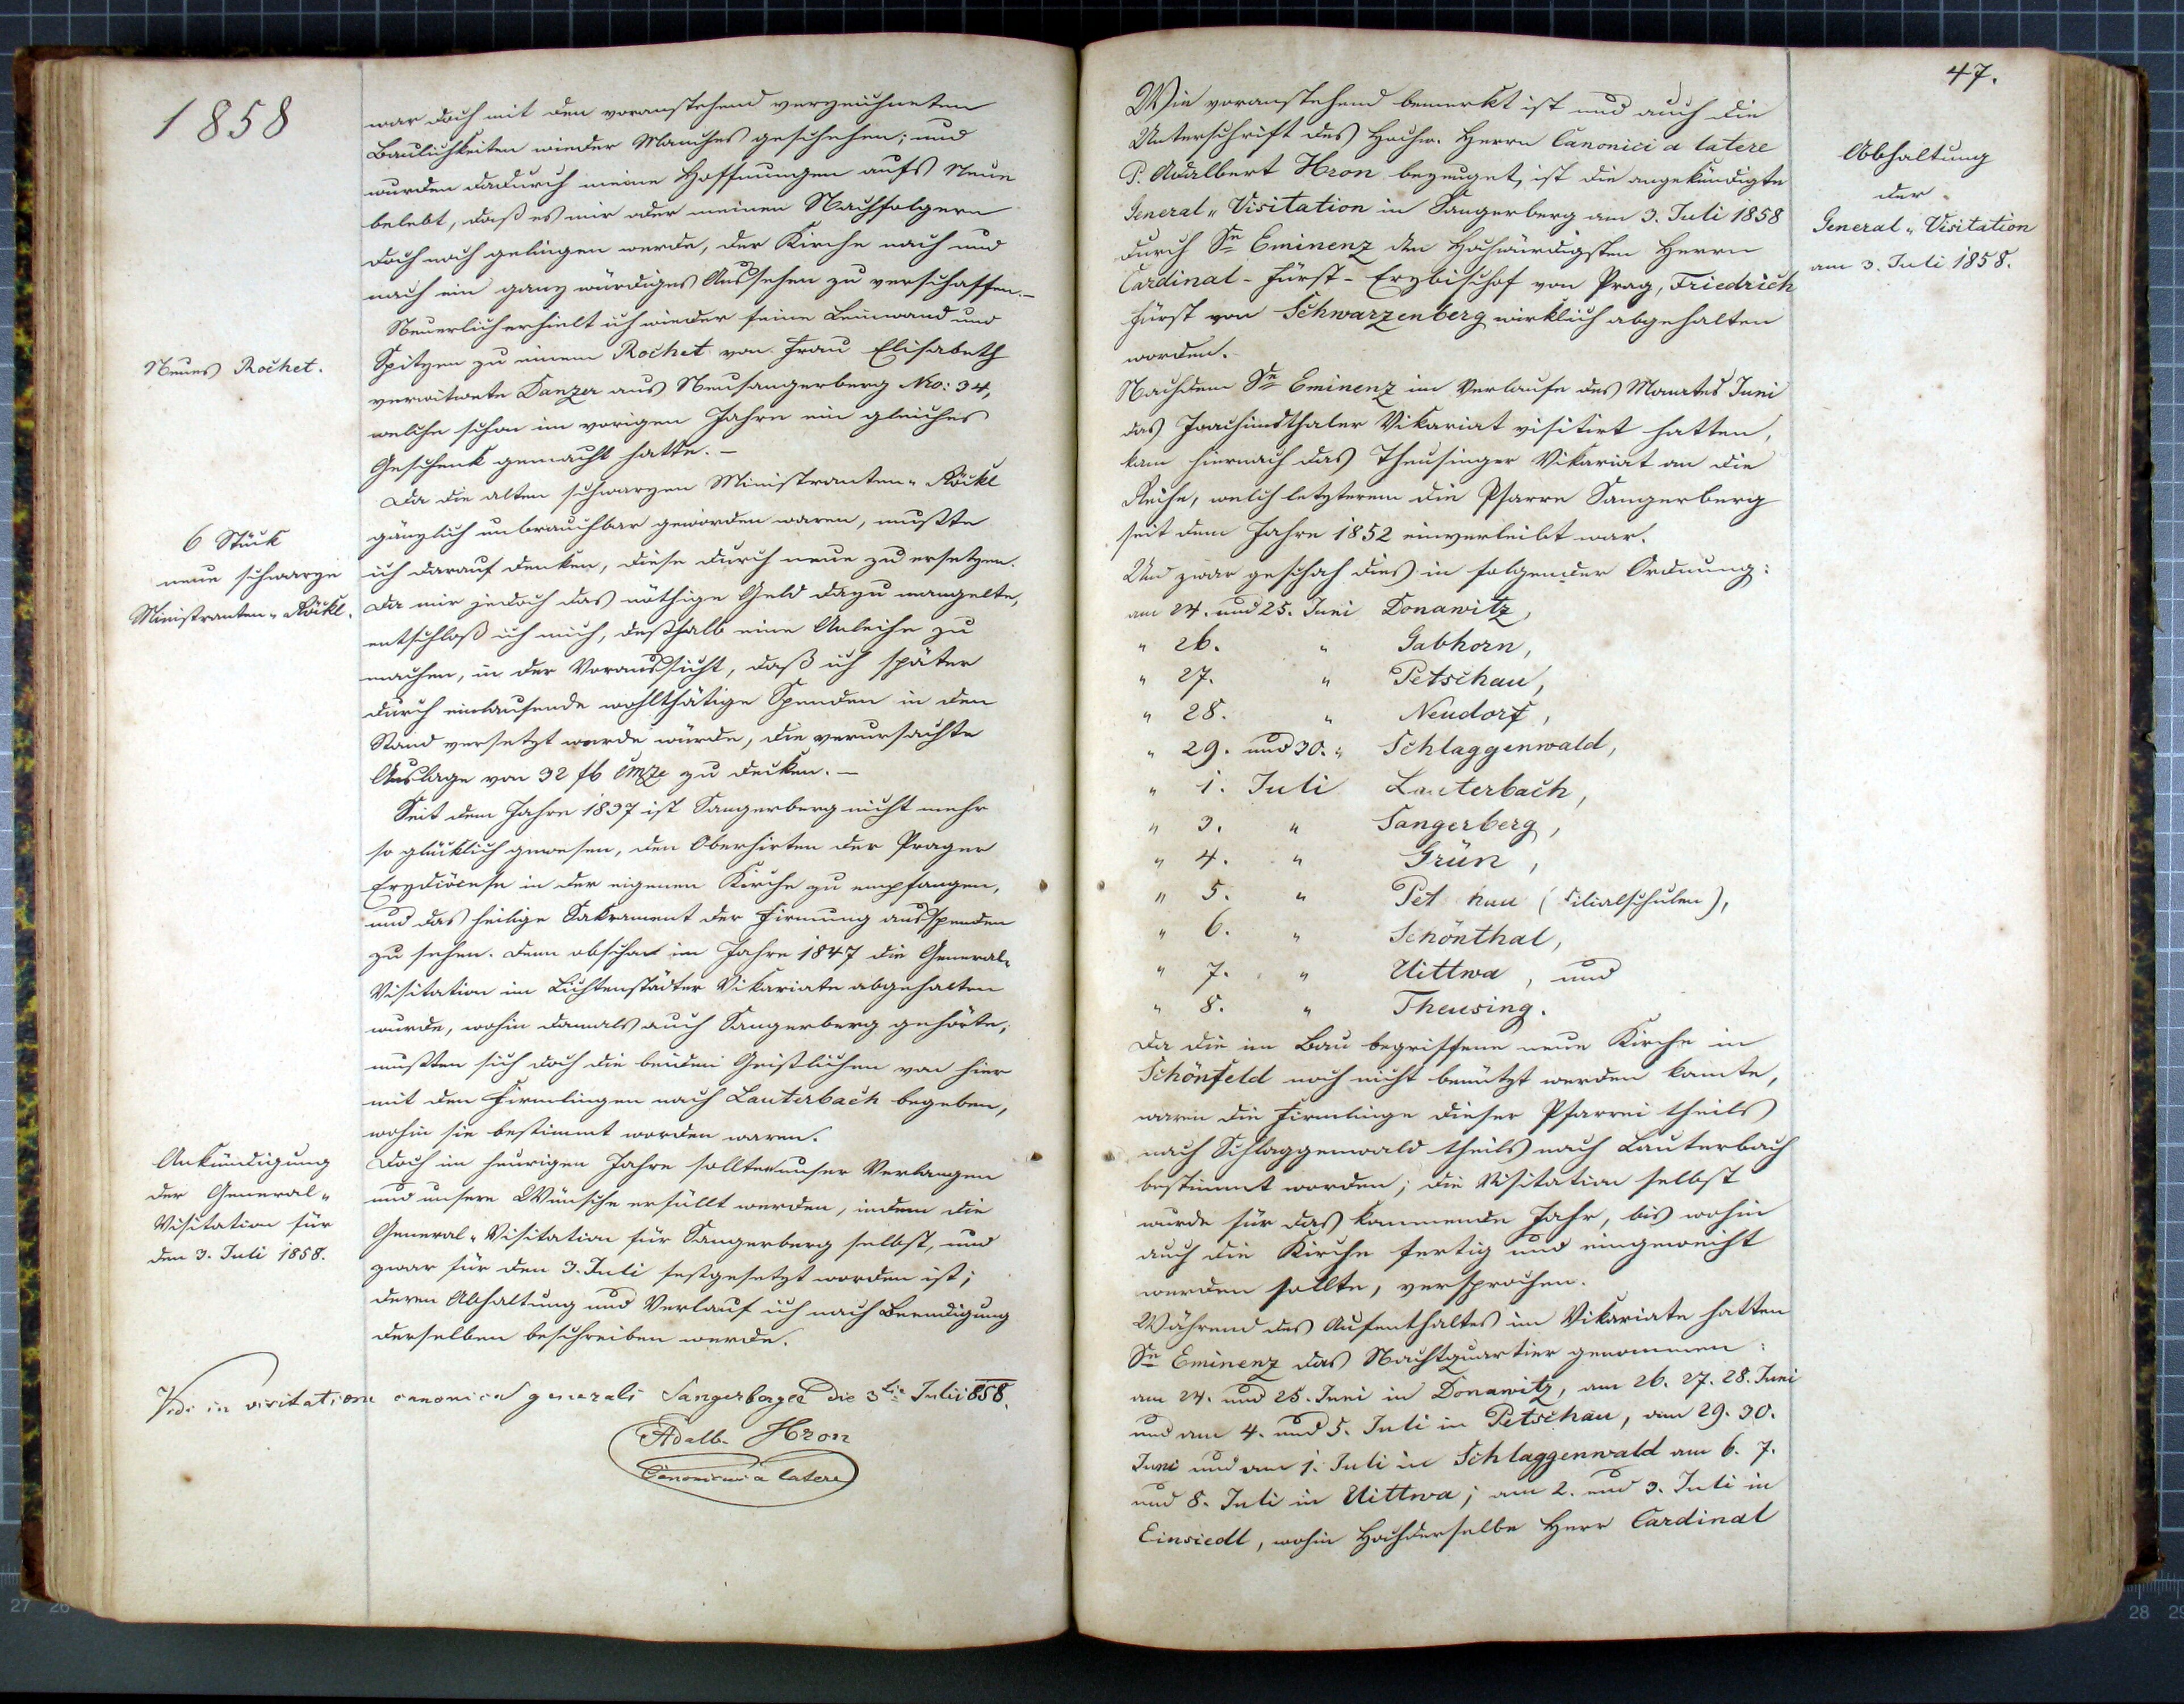 1858
war doch mit den voranstehend verzeichneten
Baulichkeiten wieder Manches geschehen; und
wurden dadurch meine Hoffnungen aufs Neue
belebt, daß es mir oder meinen Nachfolgern
doch noch gelingen werde, der Kirche nach und
nach ein ganz würdiges Aussehen zu verschaffen. –
Neues Rochet.
Neuerlich erhielt ich wieder feine Leinwand und
Spitzen zu einem Rochet von Frau Elisabeth
verwitwete Danzer aus Neusangerberg Nro: 34,
welche schon im vorigen Jahre ein gleiches
Geschenk gemacht hatte. –
6 Stück
neue schwarze
Ministranten-Röckl.
Da die alten schwarzen Ministranten-Röckl
gänzlich unbrauchbar geworden waren, mußte
ich darauf denken, diese durch neue zu ersetzen.
Da mir jedoch das nöthige Geld dazu mangelte,
entschloß ich mich, deßhalb eine Anleihe zu
machen, in der Voraussicht, daß ich später
durch einlaufende wohlthätige Spenden in den
Stand versetzt werde würde, die verursachte
Auslage von 32 f zu decken. –
Seit dem Jahre 1837 ist Sangerberg nicht mehr
so glücklich gewesen, den Oberhirten der Prager
Erzdiöcese in der eigenen Kirche zu empfangen,
und das heilige Sakrament der Firmung ausspenden
zu sehen. Denn obschon im Jahre 1847 die General-
Visitation im Lichtenstädter Vikariate abgehalten
wurde, wohin damals auch Sangerberg gehörte,
mußten sich doch die beiden Geistlichen von hier
mit den Firmlingen nach Lauterbach begeben,
wohin sie bestimmt worden waren.
Ankündigung
der General-
Visitation für
den 3. Juli 1858.
Doch im heurigen Jahre sollten unser Verlangen
und unsere Wünsche erfüllt werden, indem die
General-Visitation für Sangerberg selbst, und
zwar für den 3. Juli festgesetzt worden ist;
deren Abhaltung und Verlauf ich nach Beendigung
derselben beschreiben werde.
Vidi in visitatione canonica generali Sangerbergae die 3tia Julii 858.
Adalb. Hron
Canonicus a latere
47.
Wie voranstehend bemerkt ist und auch die
Unterschrift des Hochw. Herrn Canonici a latere
P. Adalbert Hron bezeuget, ist die angekündigte
General-Visitation in Sangerberg am 3. Juli 1858
durch Se Eminenz den Hochwürdigsten Herrn
Cardinal-Fürst-Erzbischof von Prag, Friedrich
Fürst von Schwarzenberg wirklich abgehalten
worden.
Abhaltung
der
General-Visitation
am 3. Juli 1858.
Nachdem Se Eminenz im Verlaufe des Monates Juni
das Joachimsthaler Vikariat visitirt hatten,
kam hiernach das Theusinger Vikariat an die
Reihe, welch letzterem die Pfarre Sangerberg
seit dem Jahre 1852 einverleibt war.
Und zwar geschah dies in folgender Ordnung:
am 24. und 25. Juni Donawitz,
" 26. " Gabhorn,
" 27. " Petschau,
" 28. " Neudorf,
" 29. und 30. " Schlaggenwald,
" 1. Juli Lauterbach,
" 3. " Sangerberg,
" 4. " Grün,
" 5. " Pet hau (Filialschulen),
" 6. " Schönthal,
" 7. " Uittwa, und
" 8. " Theusing.
Da die im Bau begriffene neue Kirche in
Schönfeld noch nicht benützt werden konnte,
waren die Firmlinge dieser Pfarrei theils
nach Schlaggenwald theils nach Lauterbach
bestimmt worden; die Visitation selbst
wurde für das kommende Jahr, bis wohin
auch die Kirche fertig und eingeweiht
werden sollte, versprochen.
Während des Aufenthaltes im Vikariate hatten
Se Eminenz das Nachtquartier genommen:
am 24. und 25. Juni in Donawitz, am 26. 27. 28. Juni
und am 4. und 5. Juli in Petschau, am 29. 30.
Juni und am 1. Juli in Schlaggenwald am 6. 7.
und 8. Juli in Uittwa; am 2. und 3. Juli in
Einsiedl, wohin Hochderselbe Herr Cardinal